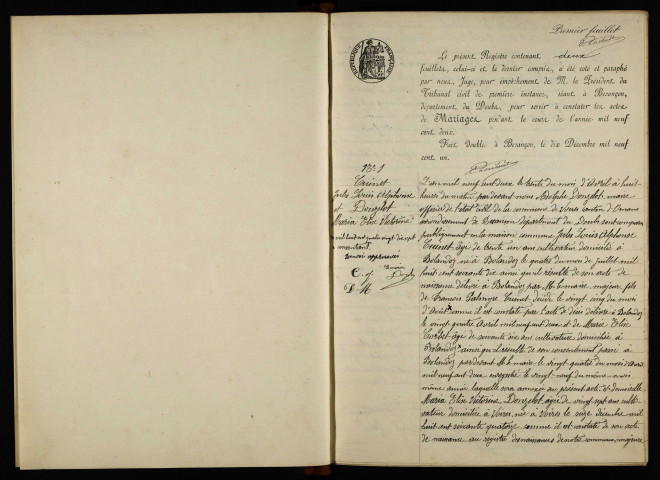 Premier feuillet
RÉPUBLIQUE FRANÇAISE
Le présent Registre contenant deux
feuillets, celui-ci et le dernier compris, a été coté et paraphé
par nous, Juge, pour empêchement de M. le Président du
Tribunal civil de première instance, séant à Besançon,
département du Doubs, pour servir à constater les actes
de Mariages pendant le cours de l'année mil neuf
cent deux.
Fait double à Besançon, le dix Décembre mil neuf
cent un.
N° 1
Jules Louis Alphonse
et
Donzelot
Maria Elise Victorine
L'an mil neuf cent deux le trente du mois d'Avril à huit
heures du matin par devant nous Adolphe Donzelot maire
officier de l'état civil de la commune de canton d'
arrondissement de Besançon département du Doubs sont comparus
publiquement en la maison commune Jules Louis Alphonse
âgé de trente un ans cultivateur domicilié à
Bolandoz né à Bolandoz le quatre du mois de juillet mil
huit cent soixante dix ainsi qu'il résulte de son acte de
naissance délivré à Bolandoz par M. le maire, majeur, fils
de François décédé le vingt cinq du mois
d'Août comme il est constaté par l'acte de décès délivré à Bolandoz
le vingt quatre Avril mil neuf cent deux et de Marie Elise
âgée de soixante dix ans cultivatrice domiciliée à
Bolandoz ainsi qu'il résulte de son consentement passé à
Bolandoz par devant M. le maire le vingt quatre du mois d'Avril
mil neuf cent deux enregistré le vingt neuf du même mois
même année laquelle sera annexée au présent acte et demoiselle
Maria Elise Victorine Donzelot, âgée de vingt sept ans culti-
vatrice domiciliée à née à le seize décembre mil
huit cent soixante quatorze comme il est constaté de son acte
de naissance au registre des naissances de notre commune, majeure